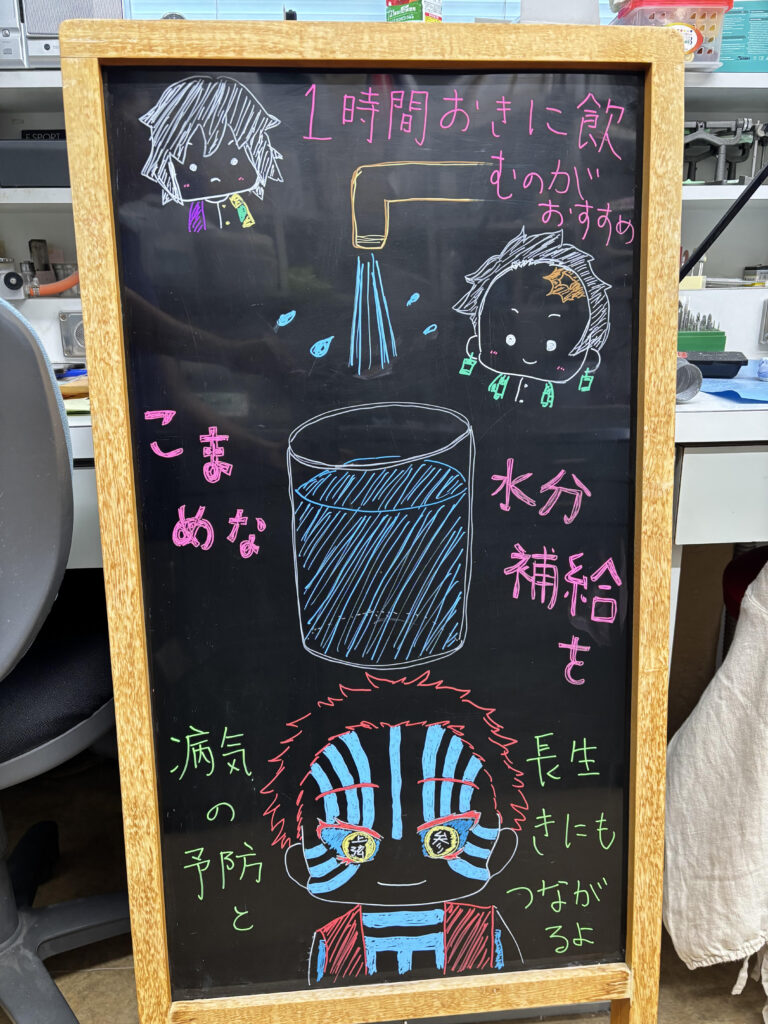 1時間おきに飲
むのが
おすすめ
こま
めな
水分
補給
を
病気
の
予防
と
長生
きにも
つながる
よ
上弦
参
ESPORT